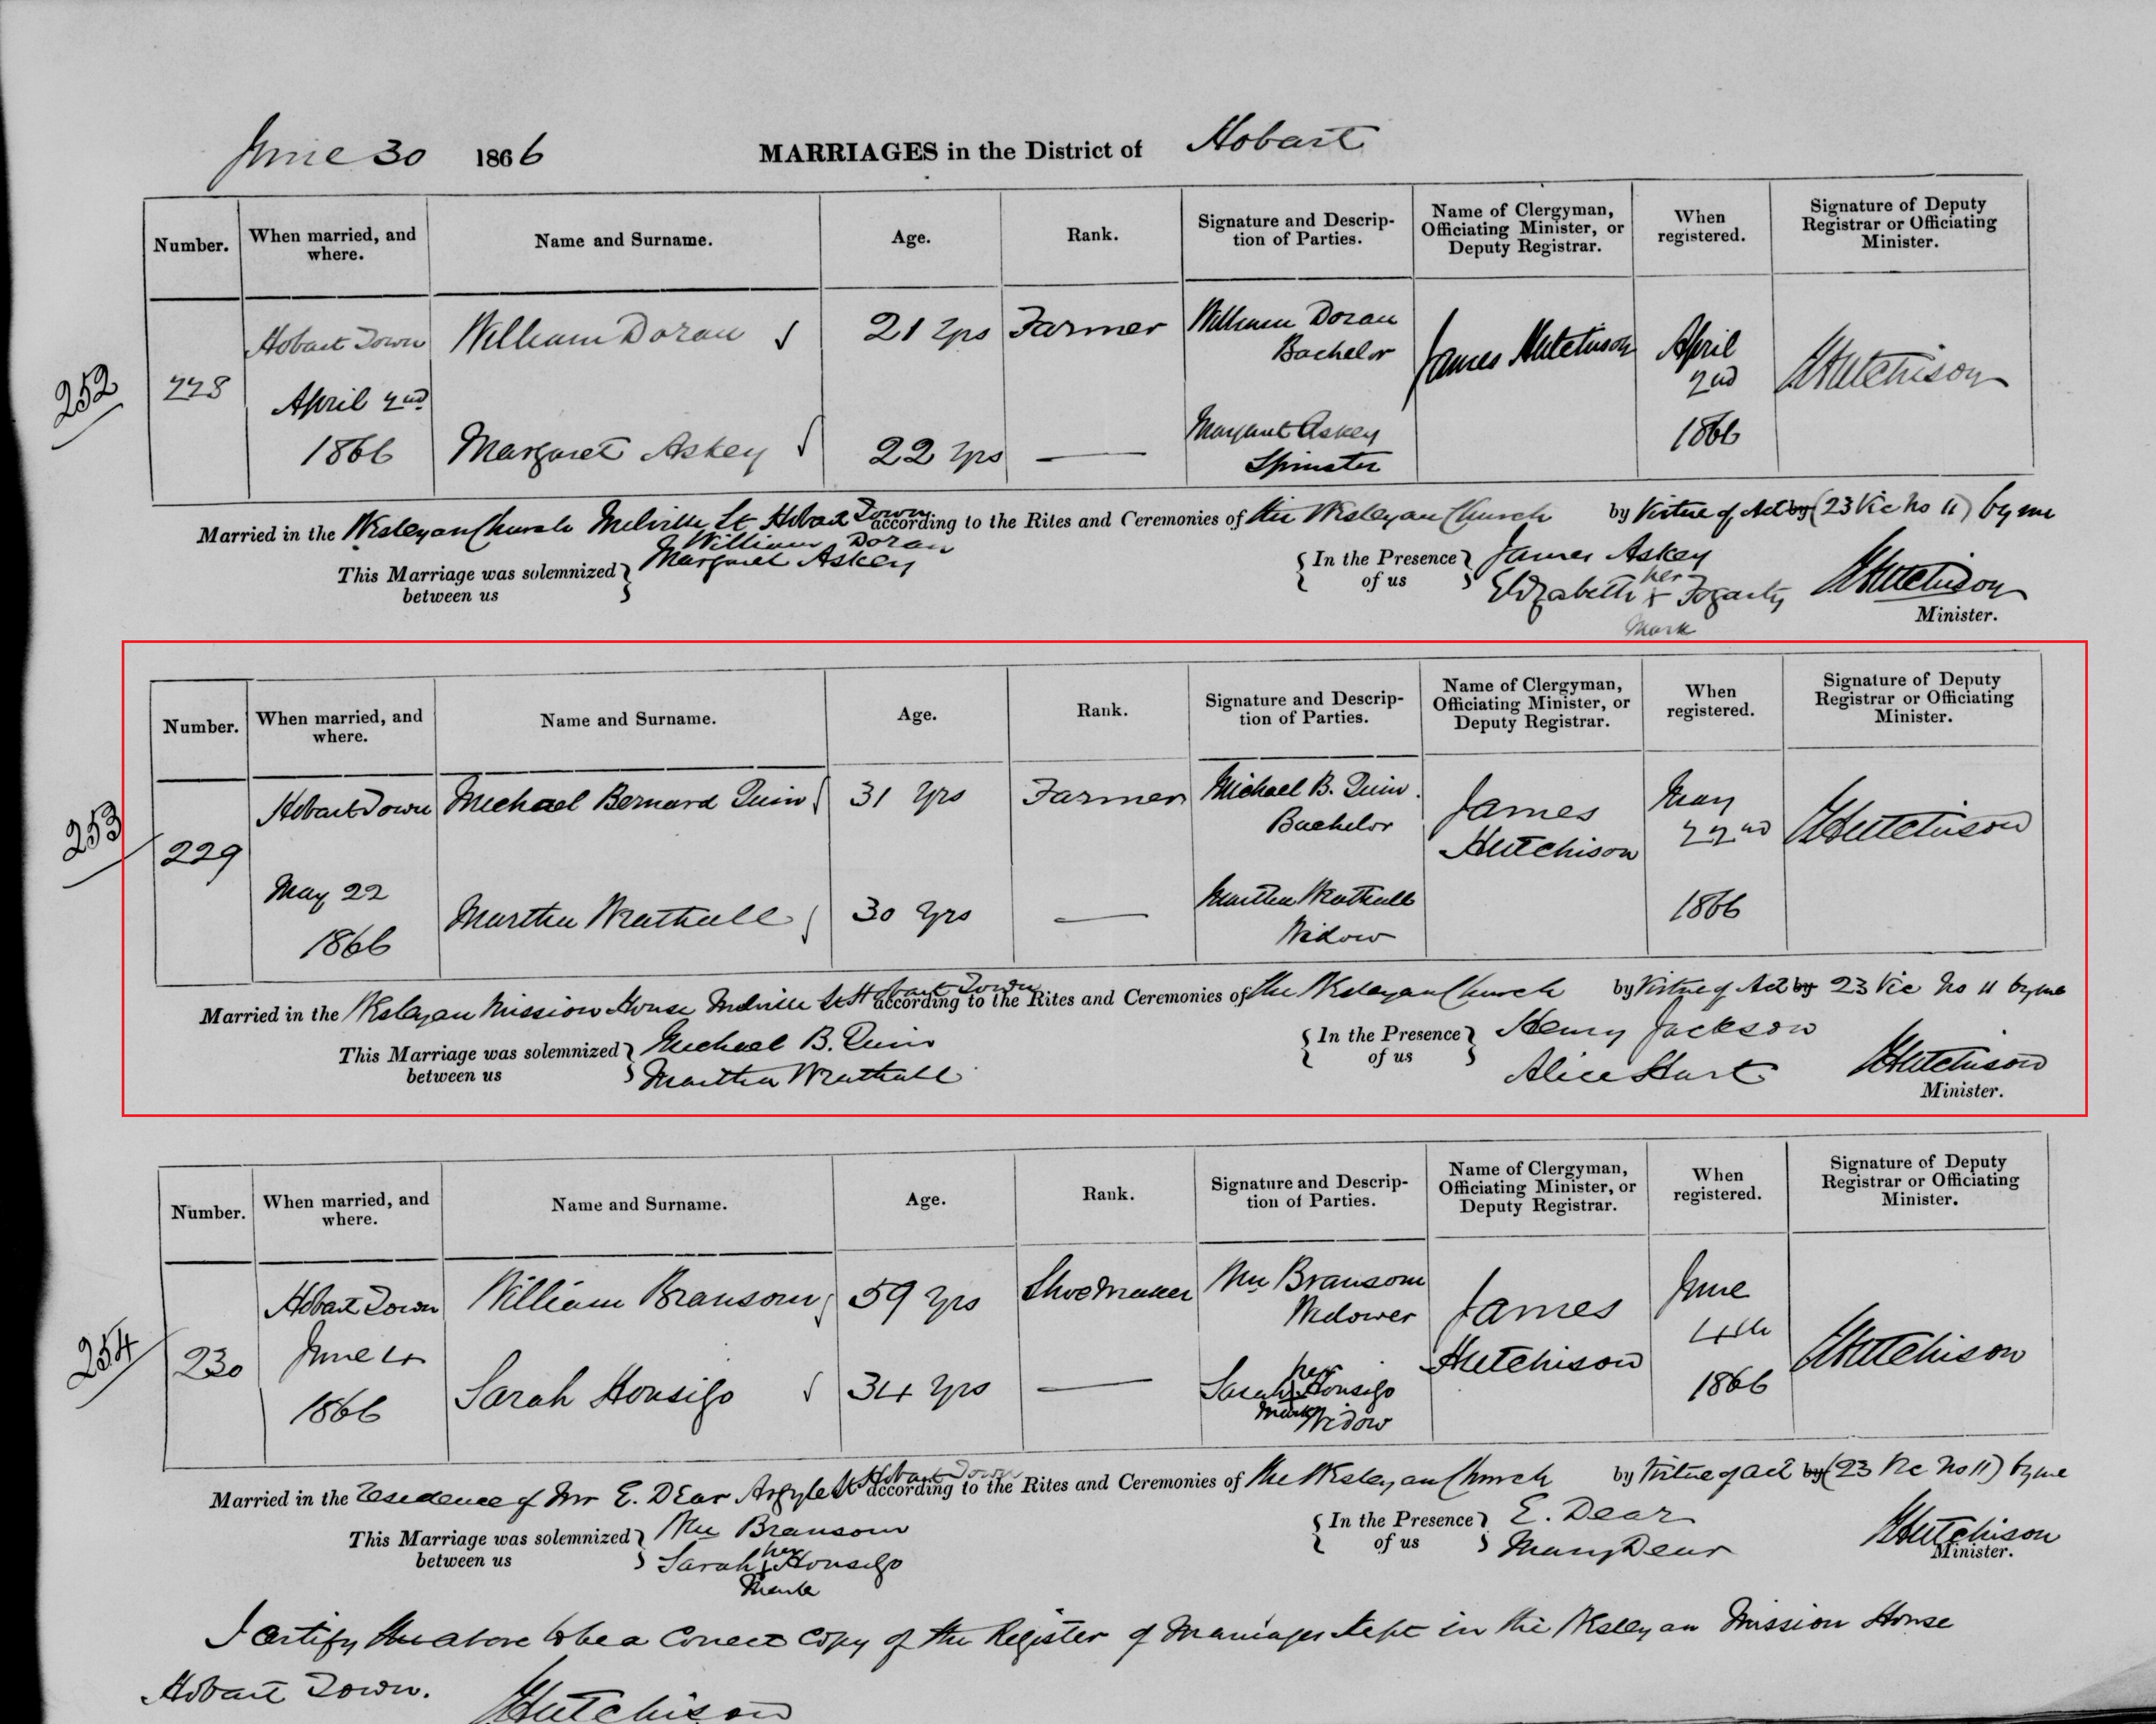 June 30 1866 MARRIAGES in the District of Hobart
Number. When married, and where. Name and Surname. Age. Rank. Signature and Description of Parties. Name of Clergyman, Officiating Minister, or Deputy Registrar. When registered. Signature of Deputy Registrar or Officiating Minister.
252
228
Hobart Town
April 2nd
1866
William Doran
Margaret Askey
21 Yrs
22 Yrs
Farmer
—
William Doran
Bachelor
Margaret Askey
Spinster
James Hutchison
April
2nd
1866
JHutchison
Married in the Wesleyan Church Melville St Hobart Town according to the Rites and Ceremonies of the Wesleyan Church by Virtue of Act by (23 Vic No 11) by me
This Marriage was solemnized between us William Doran
Margaret Askey
In the Presence of us James Askey
Elizabeth her x mark Fogarty
JHutchison
Minister.
Number. When married, and where. Name and Surname. Age. Rank. Signature and Description of Parties. Name of Clergyman, Officiating Minister, or Deputy Registrar. When registered. Signature of Deputy Registrar or Officiating Minister.
253
229
Hobart Town
May 22
1866
Michael Bernard Quin
Martha Wrathall
31 Yrs
30 Yrs
Farmer
—
Michael B. Quin.
Bachelor
Martha Wrathall
Widow
James
Hutchison
May
22nd
1866
JHutchison
Married in the Wesleyan Mission House Melville St Hobart Town according to the Rites and Ceremonies of the Wesleyan Church by Virtue of Act by 23 Vic No 11 by me
This Marriage was solemnized between us Michael B. Quin
Martha Wrathall
In the Presence of us Henry Jackson
Alice Hurst
JHutchison
Minister.
Number. When married, and where. Name and Surname. Age. Rank. Signature and Description of Parties. Name of Clergyman, Officiating Minister, or Deputy Registrar. When registered. Signature of Deputy Registrar or Officiating Minister.
254
230
Hobart Town
June 4
1866
William Bransom
Sarah Honsigo
59 Yrs
34 Yrs
Shoemaker
—
Wm Bransom
Widower
Sarah her x mark Honsigo
Widow
James
Hutchison
June
4th
1866
JHutchison
Married in the residence of Mr E. Dear Argyle St Hobart Town according to the Rites and Ceremonies of the Wesleyan Church by Virtue of act by (23 Vic No 11) by me
This Marriage was solemnized between us Wm Bransom
Sarah her x mark Honsigo
In the Presence of us E. Dear
Mary Dear
JHutchison
Minister.
I certify the above to be a Correct Copy of the Register of Marriages kept in the Wesleyan Mission House
Hobart Town.
JHutchison